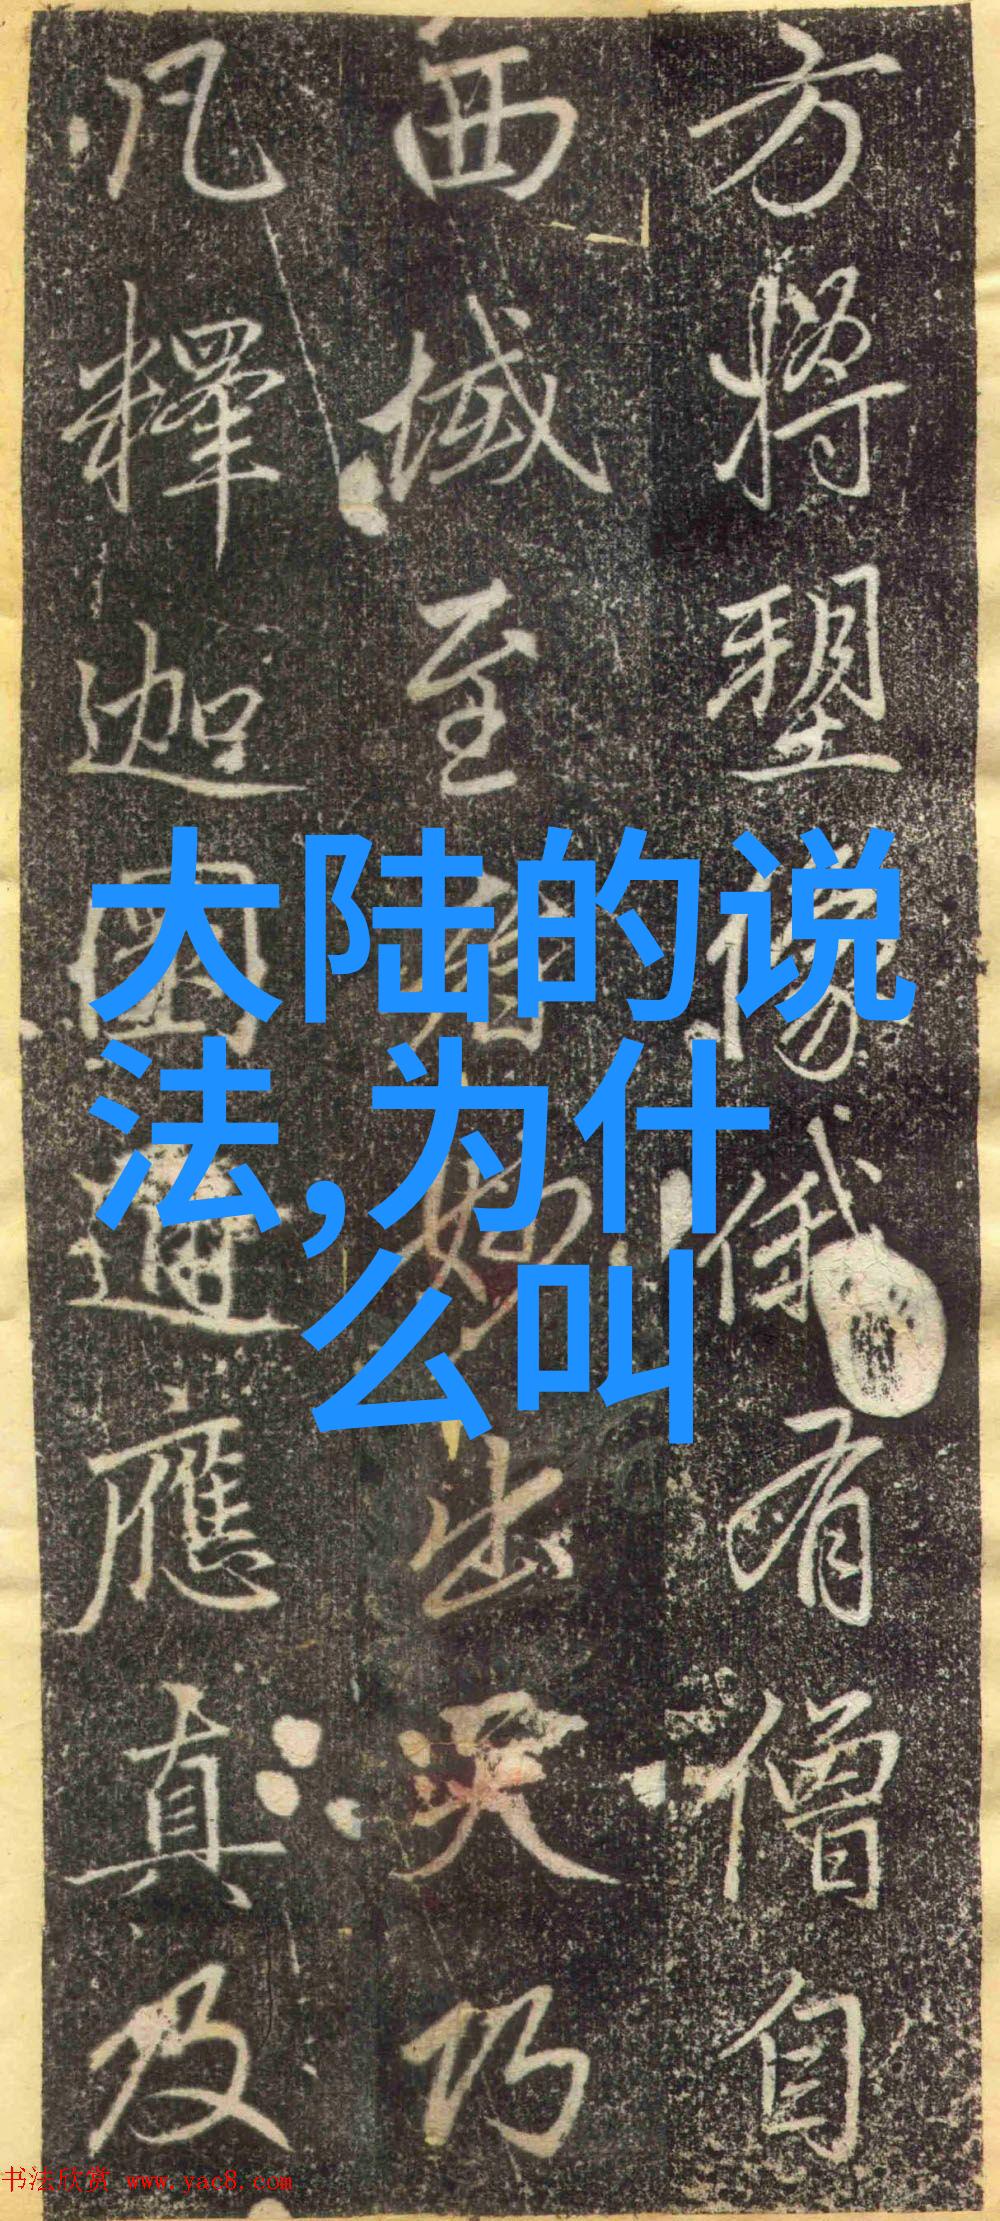 方将塑像俄有僧自
西域至者妙出天乃
凡釋迦國通應真及
大陆的说
法,为什
么叫
书法欣赏 www.yac8.com